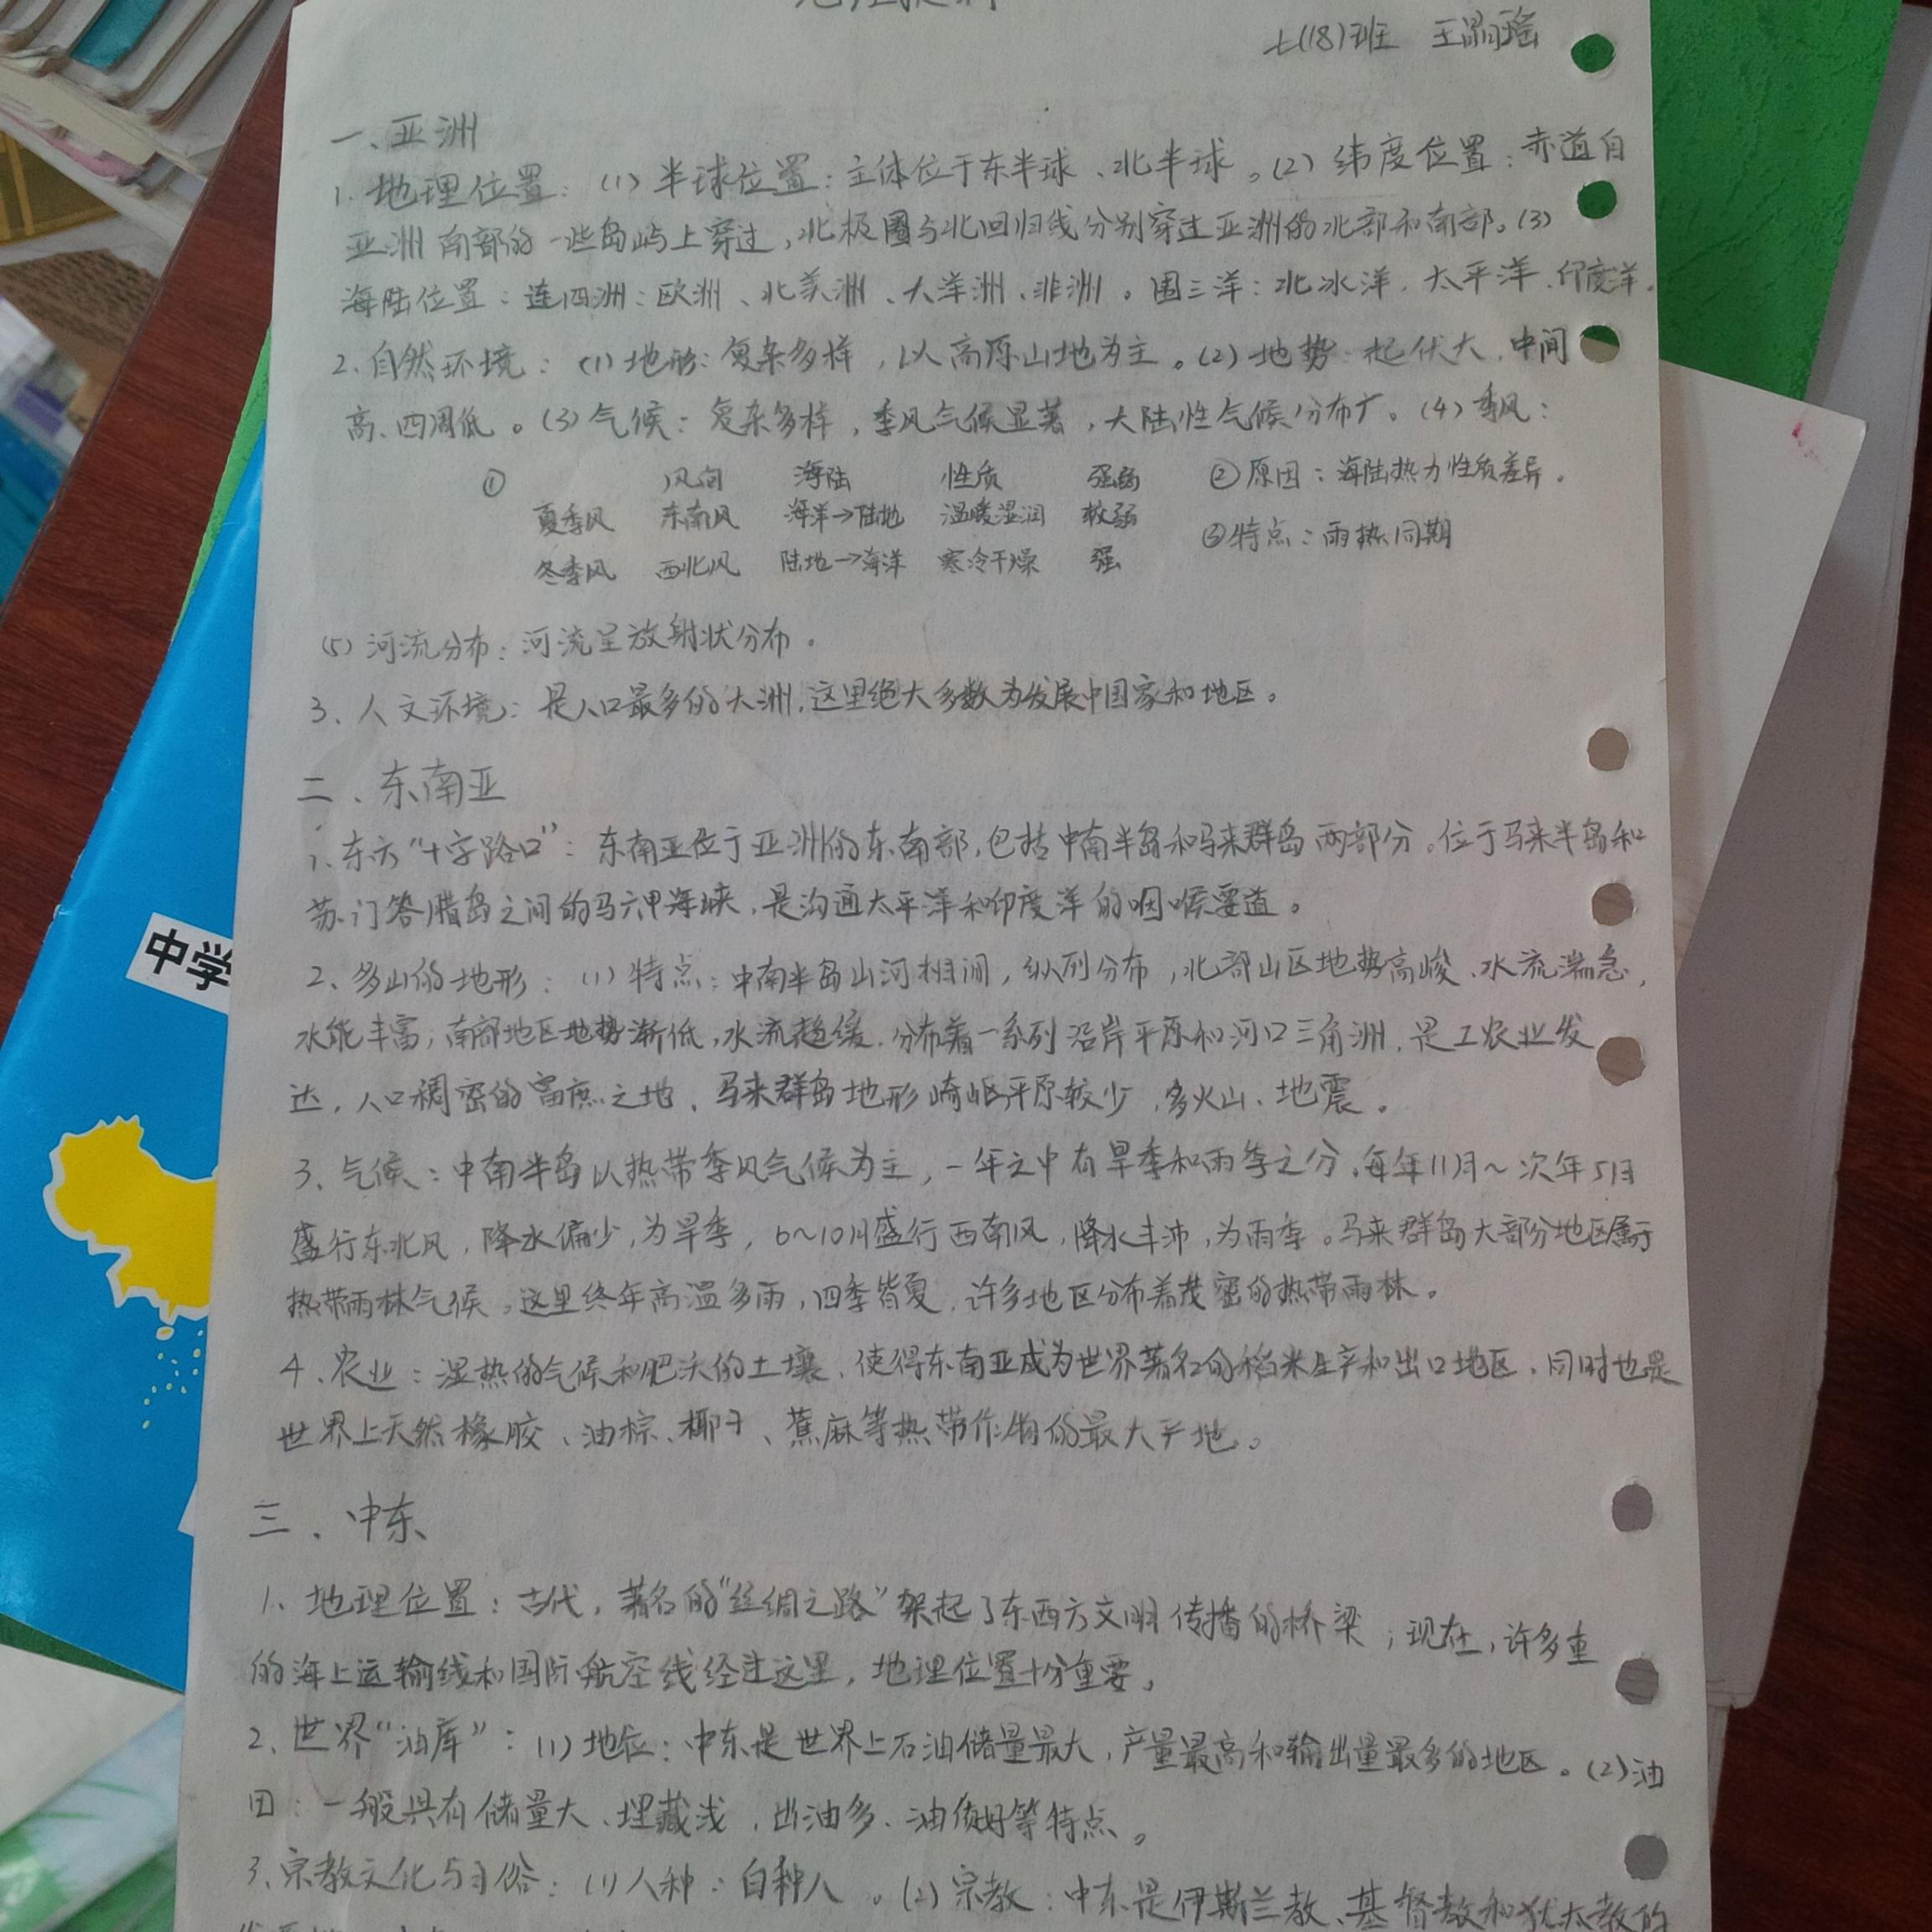 七(18)班 王晶瑶
一、亚洲
1.地理位置：(1)半球位置：主体位于东半球、北半球。(2)纬度位置：赤道自
亚洲南部的一些岛屿上穿过，北极圈与北回归线分别穿过亚洲的北部和南部。(3)
海陆位置：连四洲：欧洲、北美洲、大洋洲、非洲。围三洋：北冰洋、太平洋、印度洋。
2.自然环境：(1)地形：复杂多样，以高原山地为主。(2)地势：起伏大，中间
高、四周低。(3)气候：复杂多样，季风气候显著，大陆性气候分布广。(4)季风：
① 风向 海陆 性质 强弱 ②原因：海陆热力性质差异。
夏季风 东南风 海洋→陆地 温暖湿润 较弱
③特点：雨热同期
冬季风 西北风 陆地→海洋 寒冷干燥 强
(5)河流分布：河流呈放射状分布。
3、人文环境：是人口最多的大洲，这里绝大多数为发展中国家和地区。
二、东南亚
1、东方“十字路口”：东南亚位于亚洲的东南部，包括中南半岛和马来群岛两部分。位于马来半岛和
苏门答腊岛之间的马六甲海峡，是沟通太平洋和印度洋的咽喉要道。
2、多山的地形：(1)特点：中南半岛山河相间，纵列分布，北部山区地势高峻、水流湍急，
水能丰富；南部地区地势渐低，水流趋缓，分布着一系列沿岸平原和河口三角洲，是工农业发
达，人口稠密的富庶之地、马来群岛地形崎岖平原较少，多火山、地震。
3、气候：中南半岛以热带季风气候为主，一年之中有旱季和雨季之分，每年11月～次年5月
盛行东北风，降水偏少，为旱季，6～10月盛行西南风，降水丰沛，为雨季。马来群岛大部分地区属于
热带雨林气候。这里终年高温多雨，四季皆夏，许多地区分布着茂密的热带雨林。
4、农业：湿热的气候和肥沃的土壤，使得东南亚成为世界著名的稻米生产和出口地区，同时也是
世界上天然橡胶、油棕、椰子、蕉麻等热带作物的最大产地。
三、中东
1、地理位置：古代，著名的“丝绸之路”架起了东西方文明传播的桥梁；现在，许多重
的海上运输线和国际航空线经过这里，地理位置十分重要，
2、世界“油库”：(1)地位：中东是世界上石油储量最大，产量最高和输出量最多的地区。(2)油
田：一般具有储量大、埋藏浅、出油多、油质好等特点。
3、宗教文化与习俗：(1)人种：白种人。(2)宗教：中东是伊斯兰教、基督教和犹太教的
中学